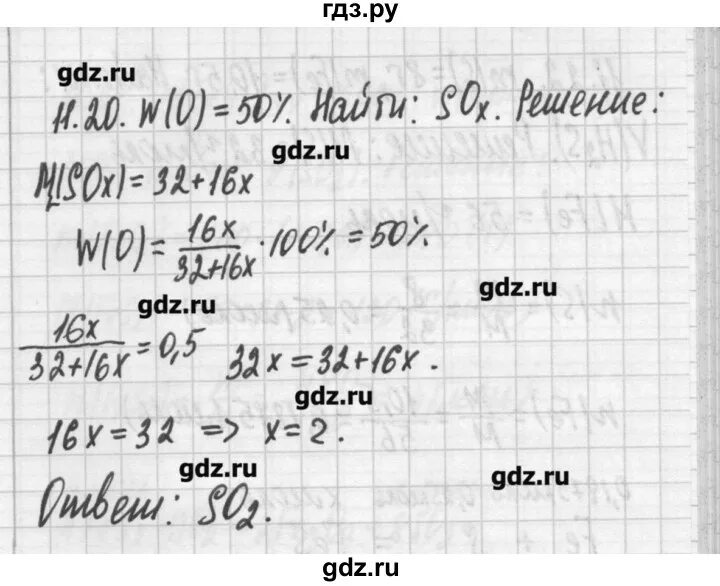 гдз.ру
gdz.ru
11.20. W(O) = 50%. Найти: SOx. Решение:
gdz.ru
M(SOx) = 32+16x
W(O) = 16x/32+16x · 100% = 50%.
gdz.ru
gdz.ru
16x/32+16x = 0,5 32x = 32+16x.
gdz.ru
16x = 32 => x = 2.
gdz.ru
gdz.ru
Ответ: SO₂.
gdz.ru